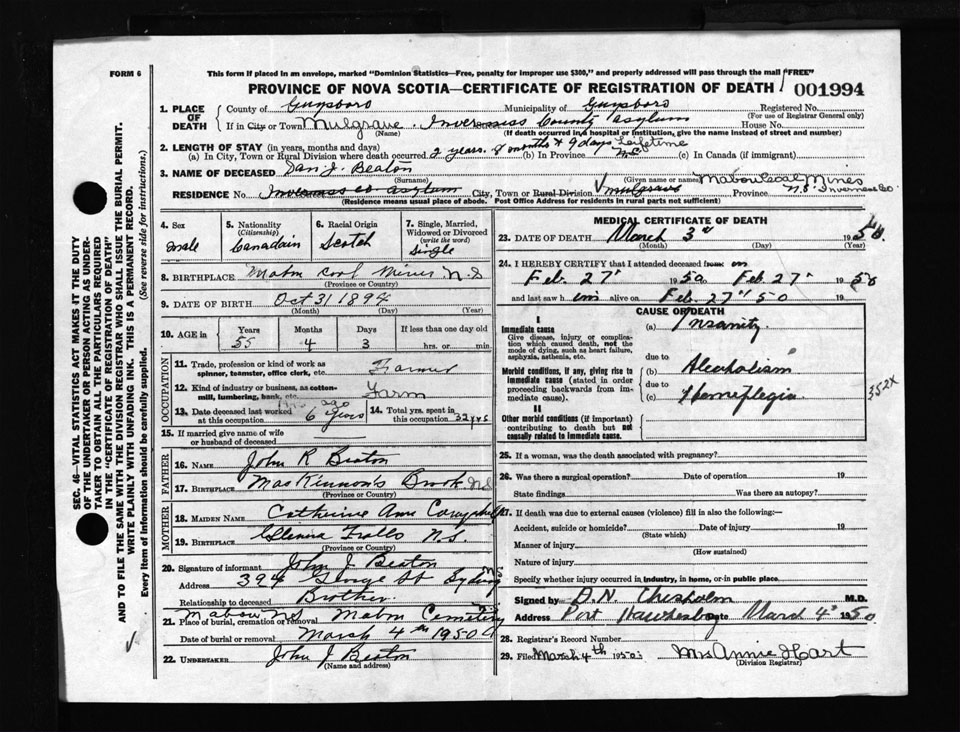 FORM 6
This form if placed in an envelope, marked "Dominion Statistics—Free, penalty for improper use $300," and properly addressed will pass through the mail "FREE"
PROVINCE OF NOVA SCOTIA—CERTIFICATE OF REGISTRATION OF DEATH
001994
1. PLACE OF DEATH
County of Guysboro Municipality of Guysboro Registered No.
(For use of Registrar General only)
If in City or Town Mulgrave. Inverness County asylum House No.
(Name) (If death occurred in a hospital or institution, give the name instead of street and number)
2. LENGTH OF STAY (in years, months and days)
(a) In City, Town or Rural Division where death occurred 2 years. 8 months & 9 days (b) In Province Lifetime N.S (c) In Canada (if immigrant)
3. NAME OF DECEASED Dan J. Beaton Mabou Coal Mines
(Surname) (Given name or names)
RESIDENCE No. Inverness Co asylum City, Town or Rural Division Mulgrave Province N.S. Inverness Co.
(Residence means usual place of abode. Post Office Address for residents in rural parts not sufficient)
4. Sex male
5. Nationality (Citizenship) Canadain
6. Racial Origin Scotch
7. Single, Married, Widowed or Divorced (write the word) Single
8. BIRTHPLACE Mabou Coal Mines N.S
(Province or Country)
9. DATE OF BIRTH Oct 31 1894
(Month) (Day) (Year)
10. AGE in Years 55 Months 4 Days 3 If less than one day old hrs. or min.
OCCUPATION
11. Trade, profession or kind of work as spinner, teamster, office clerk, etc. Farmer
12. Kind of industry or business, as cotton-mill, lumbering, bank, etc. Farm
13. Date deceased last worked at this occupation 6 years ago
14. Total yrs. spent in this occupation 32 yrs
15. If married give name of wife or husband of deceased
FATHER
16. NAME John R Beaton
17. BIRTHPLACE MacKinnon's Brook N.S
(Province or Country)
MOTHER
18. MAIDEN NAME Catherine Ann Campbell
19. BIRTHPLACE N.S.
(Province or Country)
20. Signature of informant John J. Beaton
Address 394 George St Sydney N.S
Relationship to deceased Brother
Mabou N.S Mabou Cemetery
21. Place of burial, cremation or removal
Date of burial or removal March 4th 1950
22. UNDERTAKER John J Beaton
(Name and address)
MEDICAL CERTIFICATE OF DEATH
23. DATE OF DEATH March 3rd 1950
(Month) (Day) (Year)
24. I HEREBY CERTIFY that I attended deceased from on
Feb. 27" 1950 Feb. 27" 1950
and last saw him alive on Feb. 27" 50 19
CAUSE OF DEATH
I
Immediate cause
Give disease, injury or complication which caused death, not the mode of dying, such as heart failure, asphyxia, asthenia, etc.
(a) Insanity.
due to
Morbid conditions, if any, giving rise to immediate cause (stated in order proceeding backwards from immediate cause).
(b) Alcoholism
due to
(c) Hemeflegia
352X
II
Other morbid conditions (if important) contributing to death but not causally related to immediate cause.
25. If a woman, was the death associated with pregnancy?
26. Was there a surgical operation? Date of operation 19
State findings Was there an autopsy?
27. If death was due to external causes (violence) fill in also the following:—
Accident, suicide or homicide? Date of injury 19
(State which)
Manner of injury
(How sustained)
Nature of injury
Specify whether injury occurred in industry, in home, or in public place.
Signed by D.N. Chisholm M.D.
Address Port Hawkesbury Date March 4" 1950
28. Registrar's Record Number
29. Filed March 4th 1950 Mrs Annie Hart
(Division Registrar)
SEC. 46—VITAL STATISTICS ACT MAKES IT THE DUTY OF THE UNDERTAKER OR PERSON ACTING AS UNDERTAKER TO OBTAIN ALL THE PARTICULARS REQUIRED IN THE "CERTIFICATE OF REGISTRATION OF DEATH" AND TO FILE THE SAME WITH THE DIVISION REGISTRAR WHO SHALL ISSUE THE BURIAL PERMIT.
WRITE PLAINLY WITH UNFADING INK. THIS IS A PERMANENT RECORD.
Every item of Information should be carefully supplied. (See reverse side for instructions.)